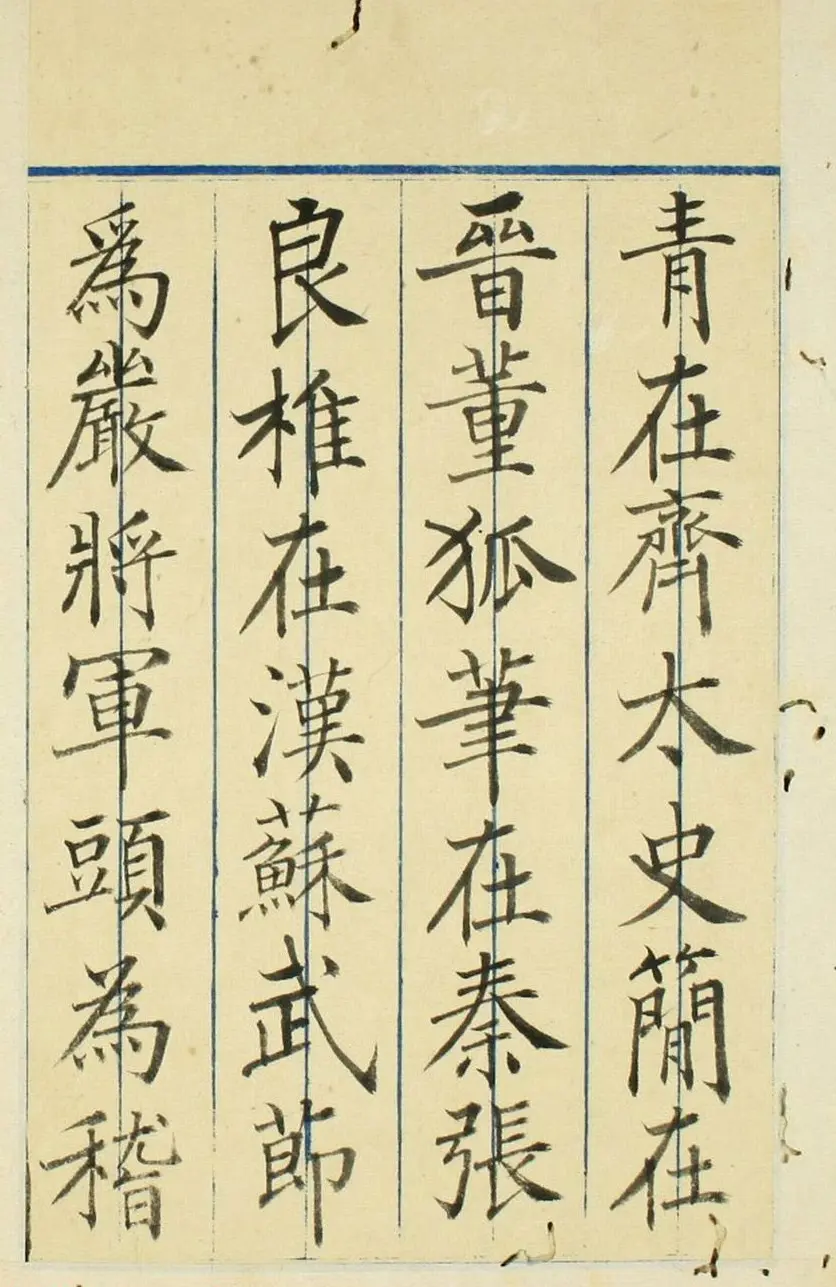 青在齊太史簡在
晉董狐筆在秦張
良椎在漢蘇武節
爲嚴將軍頭為稽